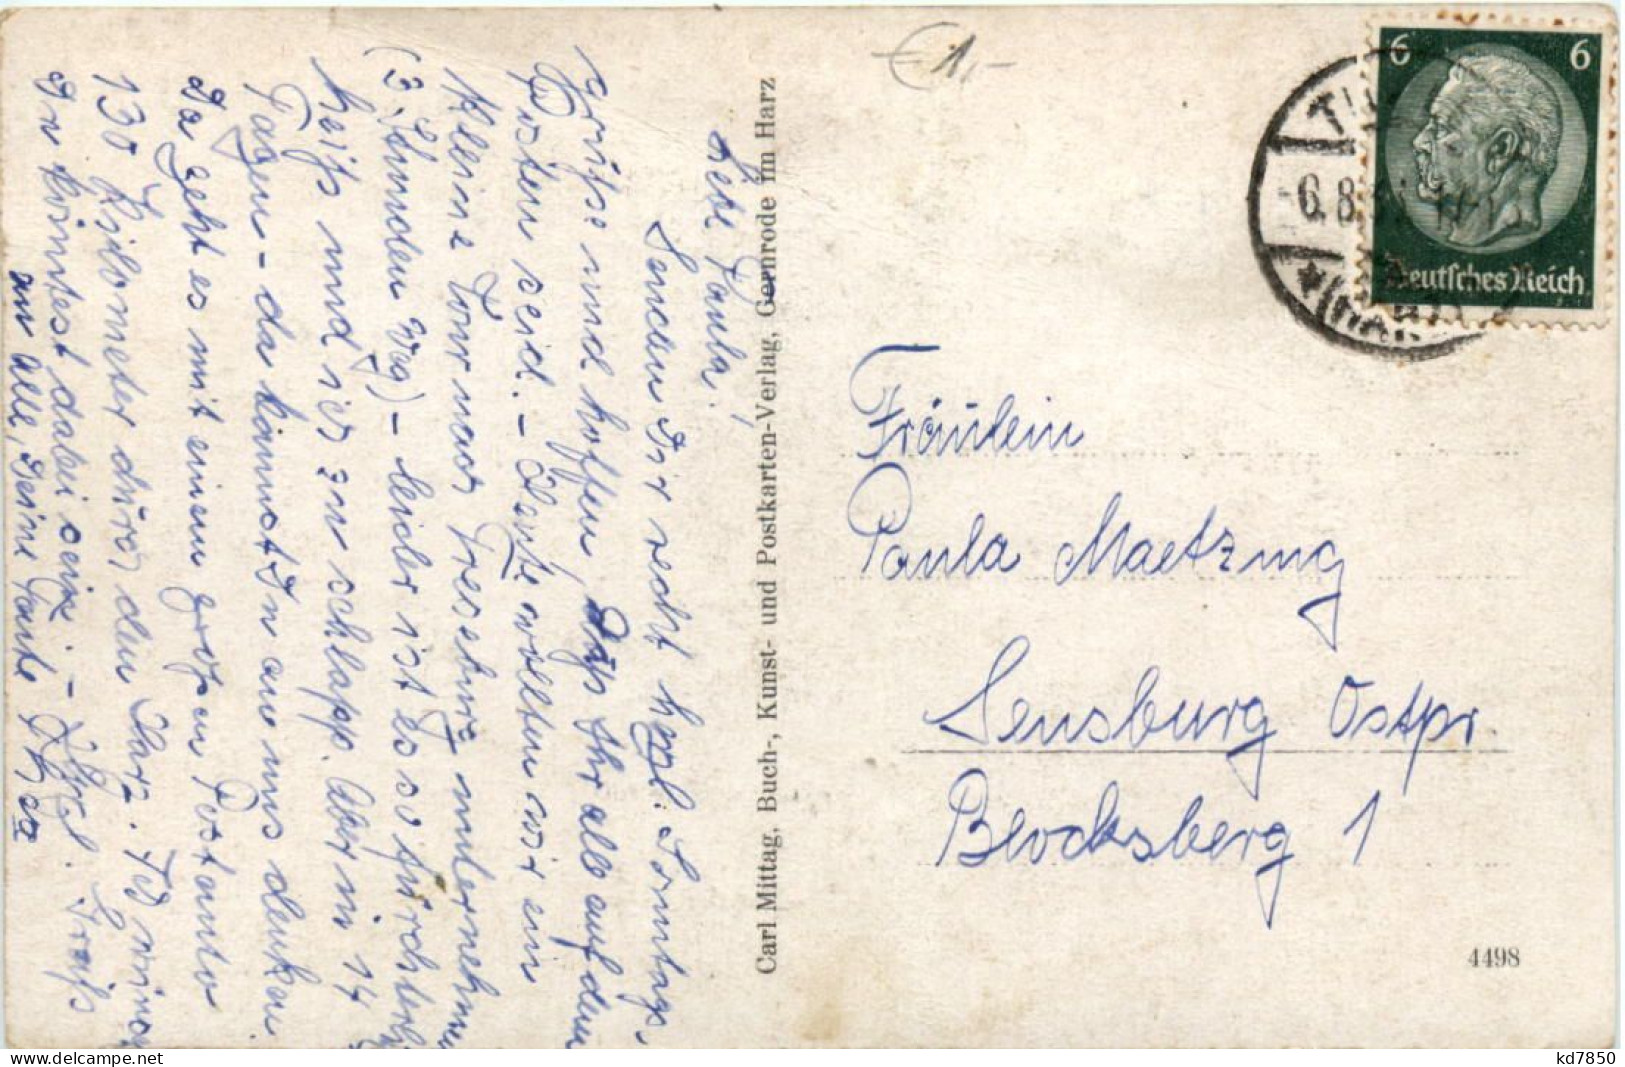 Liebe Paula!
Senden Dir recht herzl. Sonntags-
grüße und hoffen, daß Ihr alle auf dem
Posten seid. - Heute wollten wir ein
kleine Tour nach Treseburg unternehmen
(3 Stunden Weg) - leider ist es so fürchterl.
heiß und ich zu schlapp. Aber in 14
Tagen - da kannst Du an uns denken.
Da geht es mit einem großen Postauto
130 Kilometer durch den Harz. Ich wünsch
Du könntest dabei sein. - Herzl. Gruß
an alle, Deine Tante
Carl Mittag, Buch-, Kunst- und Postkarten-Verlag, Gernrode im Harz
€ 1,-
6 6
Deutsches Reich
6.8.3
Fräulein
Paula Maetzing
Sensburg Ostpr.
Blocksberg 1
4498
kd7850
delcampe.net